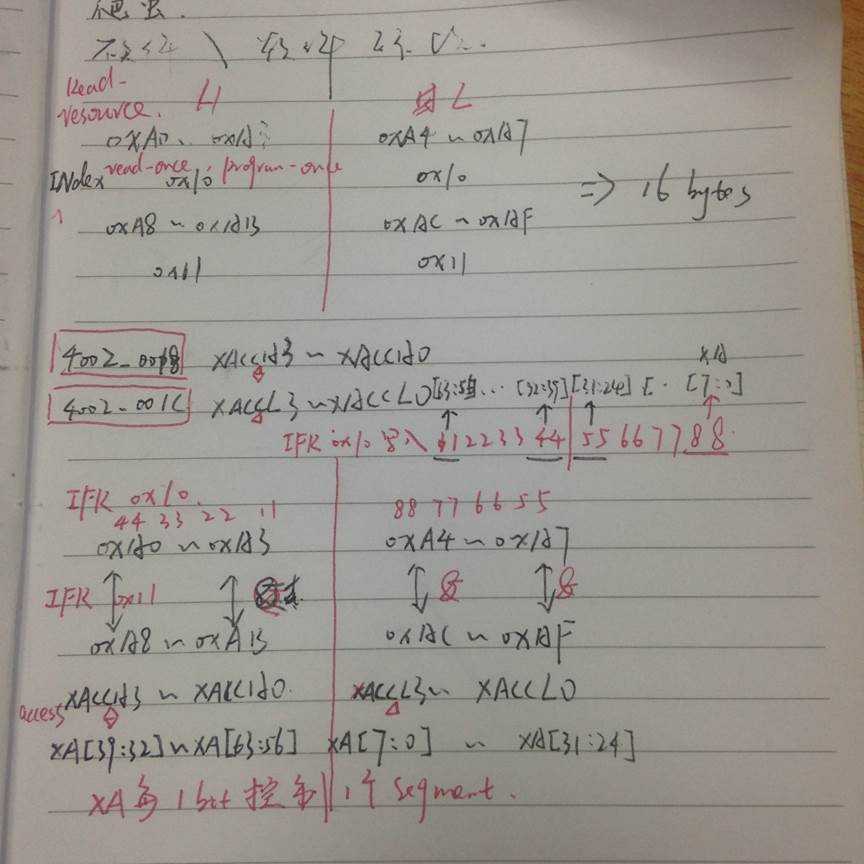 Read-resource. H L
0xA0 ~ 0xA3 0xA4 ~ 0xA7
INdex read-once 0x10 program-once 0x10 => 16 bytes
0xA8 ~ 0xAB 0xAC ~ 0xAF
0x11 0x11
4002_0018 XACCH3 ~ XACCH0 XA
4002_001C XACCL3 ~ XACCL0 [63:56]... [32:39] [31:24] [.. [7:0]
IFR 0x10 写入 11 22 33 44 55 66 77 88
IFR 0x10
44 33 22 11 88 77 66 55
0xA0 ~ 0xA3 0xA4 ~ 0xA7
IFR 0x11 & & &
0xA8 ~ 0xAB 0xAC ~ 0xAF
access XACCH3 ~ XACCH0 XACCL3 ~ XACCL0
XA[39:32] ~ XA[63:56] XA[7:0] ~ XA[31:24]
XA 每 1 bit 控制 1个 segment.